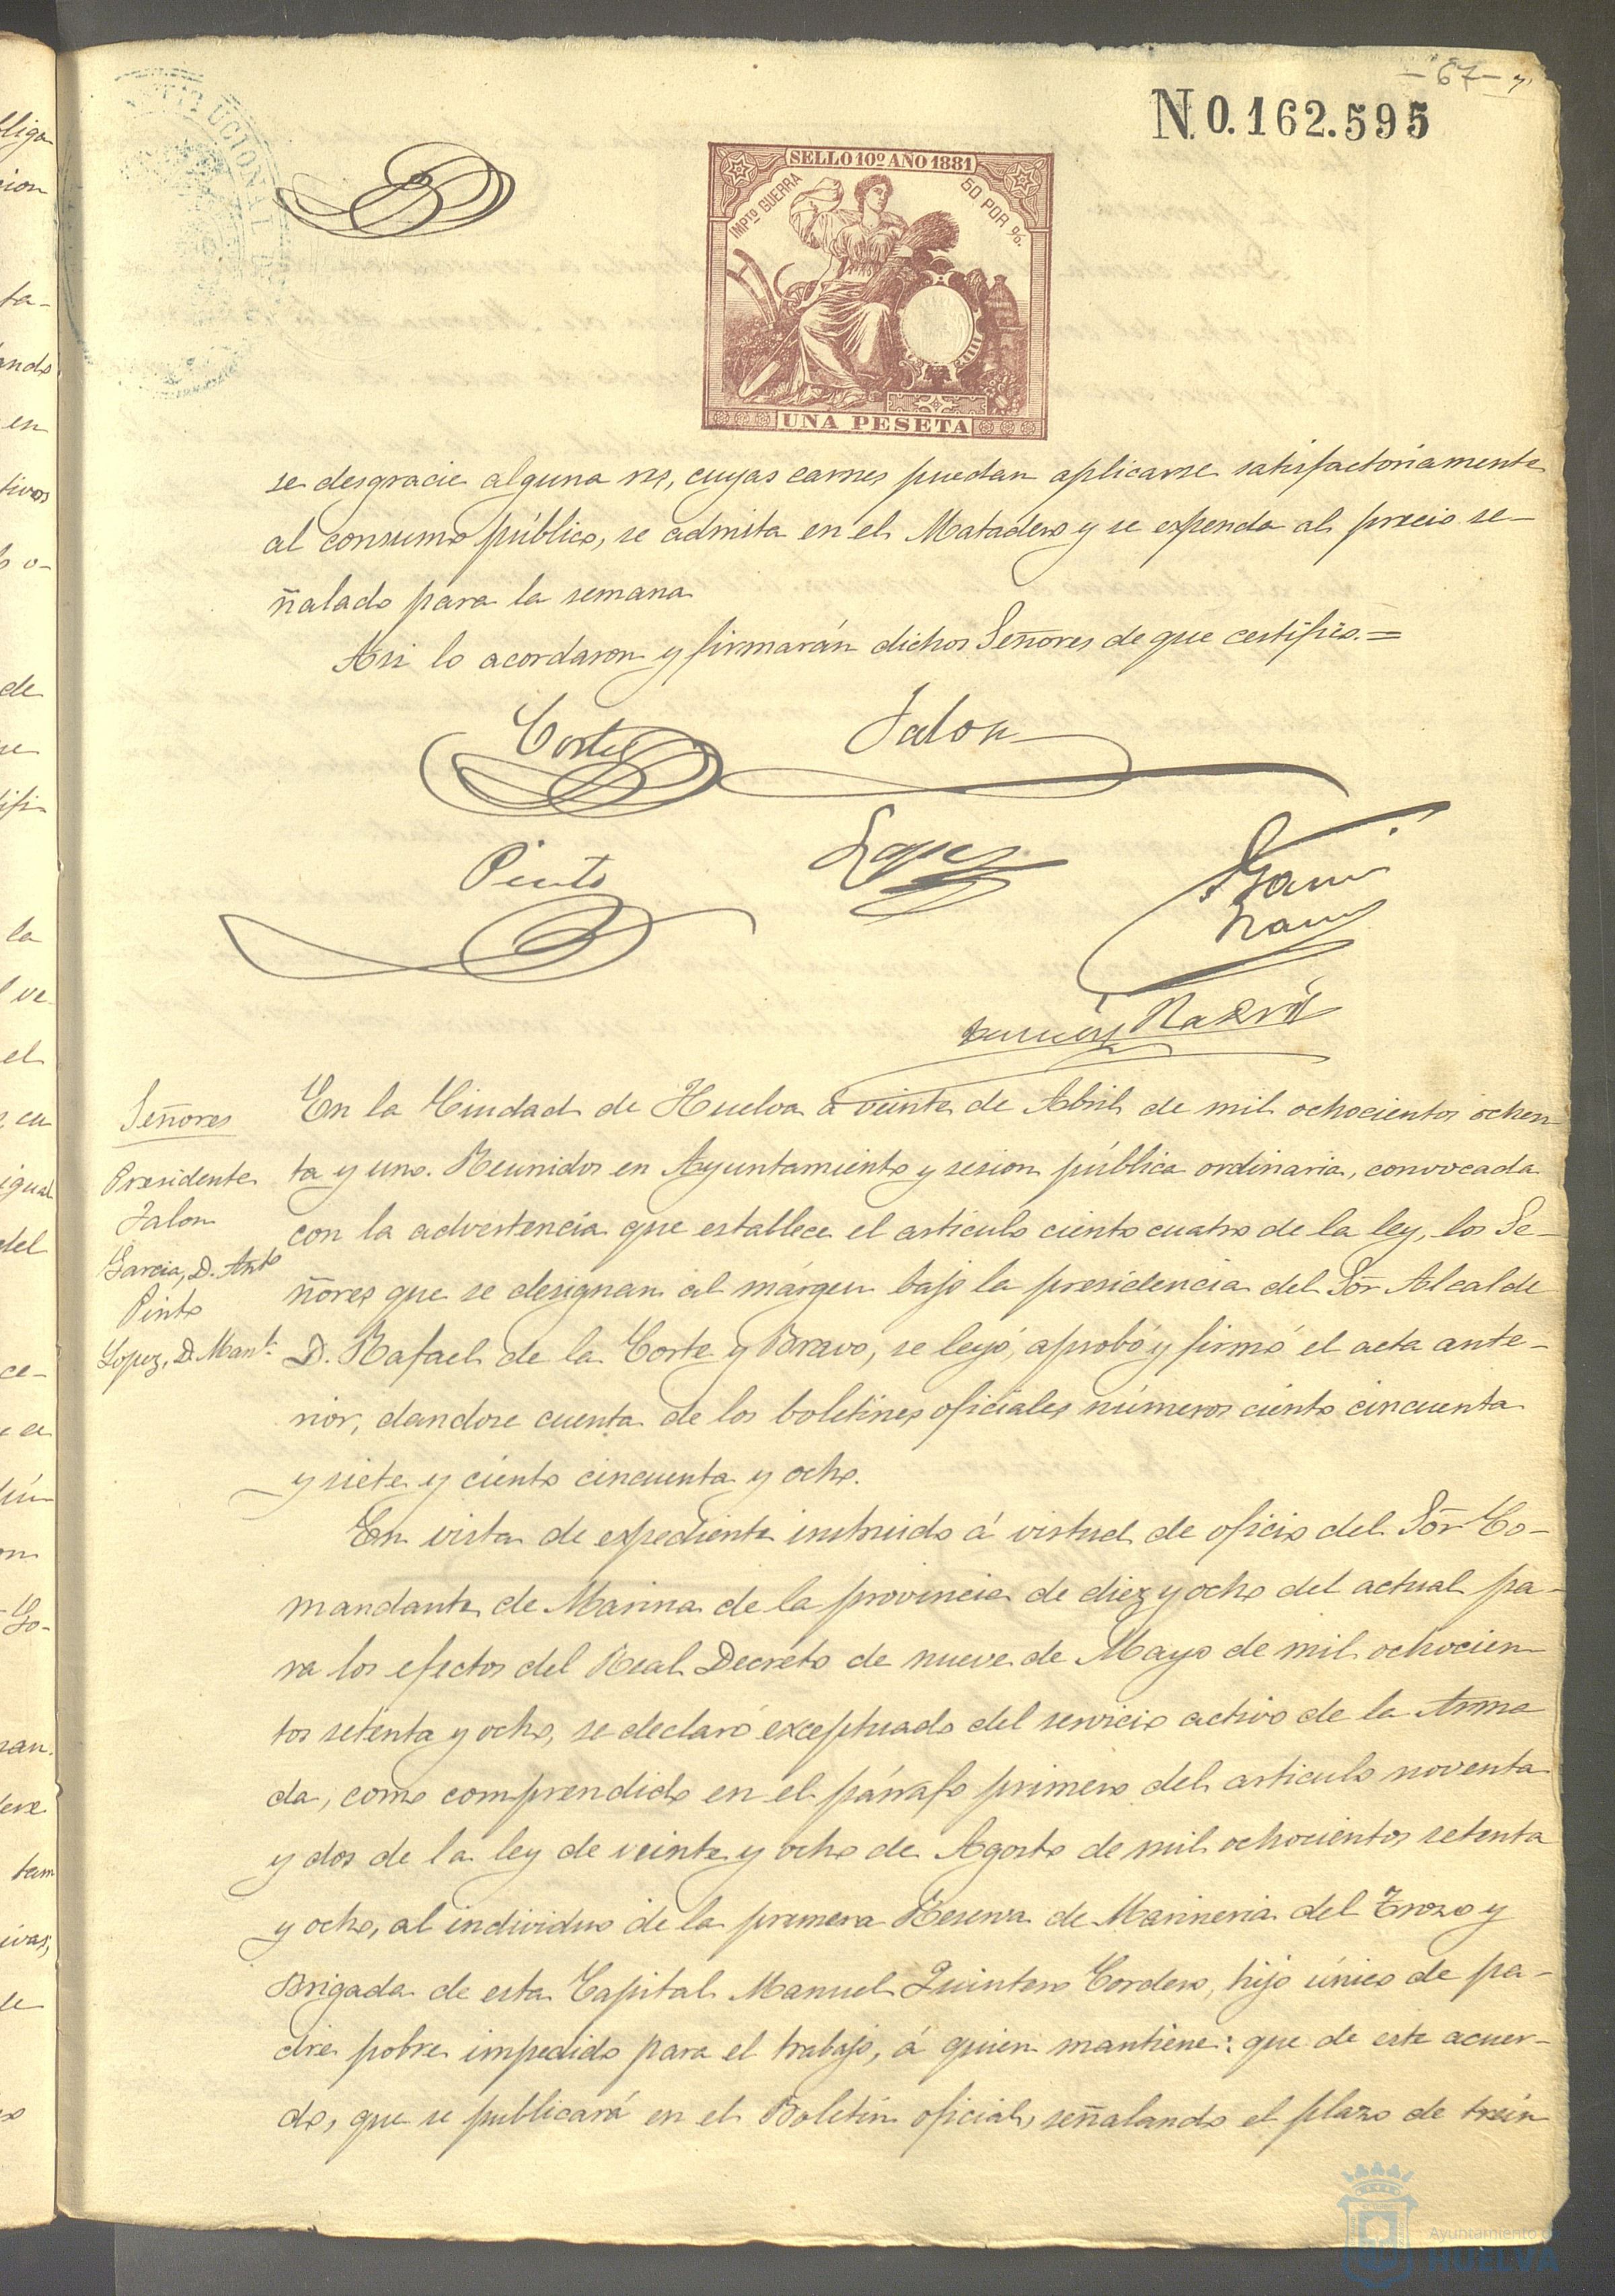 -67-
N.0.162.595
SELLO 10º AÑO 1881
IMPTO GUERRA
50 POR %.
UNA PESETA
se desgracie alguna res, cuyas carnes puedan aplicarse satisfactoriamente
al consumo público, se admita en el Matadero y se expenda al precio se-
ñalado para la semana
Asi lo acordaron y firmarán dichos Señores de que certifico.=
Corte
Jalon
Pinto
Lopez
En la Ciudad de Huelva a veinte de Abril de mil ochocientos ochen
ta y uno. Reunidos en Ayuntamiento y sesion pública ordinaria, convocada
con la advertencia que establece el articulo ciento cuatro de la ley, los Se-
ñores que se designan al márgen bajo la presidencia del Sor Alcalde
D. Rafael de la Corte y Bravo, se leyó, aprobó y firmó el acta ante-
rior, dandose cuenta de los boletines oficiales números ciento cincuenta
y siete y ciento cincuenta y ocho.
Señores
Presidente
Jalon
Garcia, D. Anto
Pinto
Lopez, D. Manl.
En vista de expediente instruido á virtud de oficio del Sor Co-
mandante de Marina de la provincia de diez y ocho del actual pa-
ra los efectos del Real Decreto de nueve de Mayo de mil ochocien
tos setenta y ocho, se declaró exceptuado del servicio activo de la Arma
da, como comprendido en el párrafo primero del articulo noventa
y dos de la ley de veinte y ocho de Agosto de mil ochocientos setenta
y ocho, al individuo de la primera Reserva de Marineria del Trozo y
Brigada de esta Capital Manuel Quintero Cordero, hijo único de pa-
dre pobre impedido para el trabajo, á quien mantiene: que de este acuer-
do, que se publicará en el Boletin oficial, señalando el plazo de trein
Ayuntamiento d
HUELVA